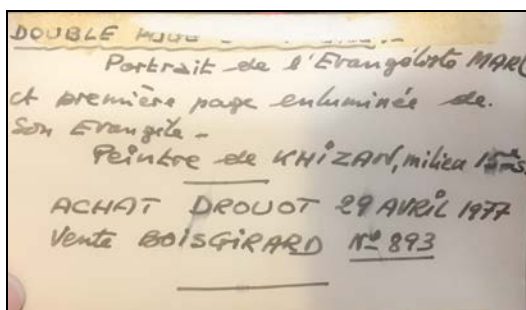 DOUBLE
Portrait de l'Evangéliste MARC
et première page enluminée de
Son Evangile -
Peintre de KHIZAN, milieu
ACHAT DROUOT 29 AVRIL 1977
Vente BOISGIRARD Nº 893